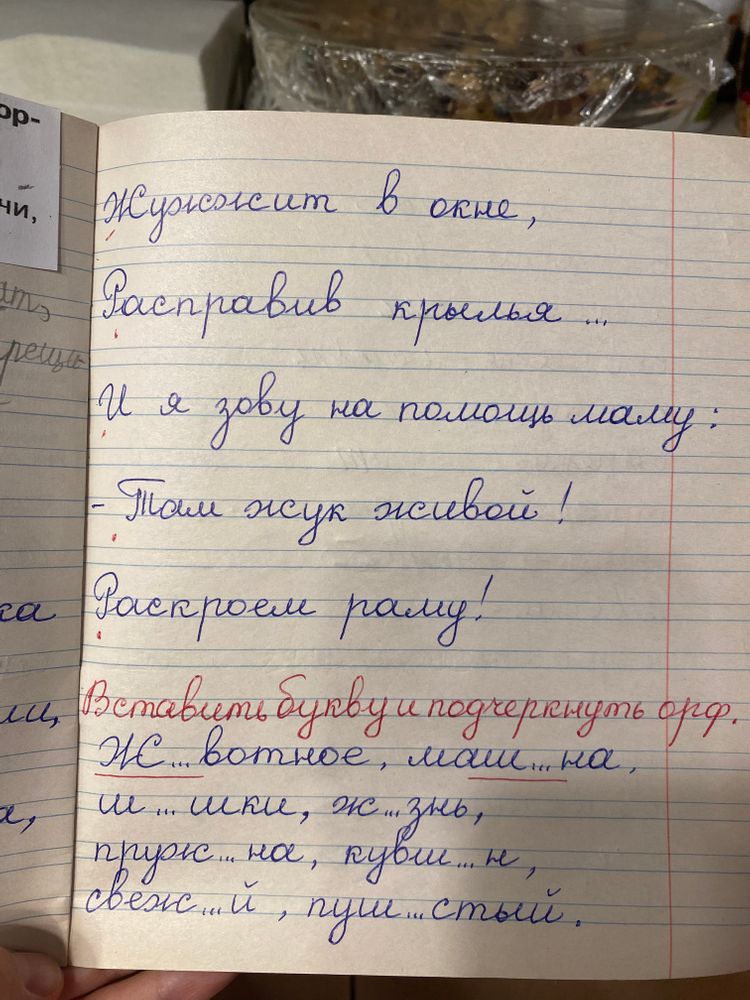 ор-
чи,
Жужжит в окне,
Расправив крылья ...
И я зову на помощь маму:
- Там жук живой!
ка Раскроем раму!
ли, Вставить букву и подчеркнуть орф.
Ж...вотное, маш...на,
ш...шки, ж...знь,
а, пруж...на, кувш...н,
свеж...й, пуш...стый.